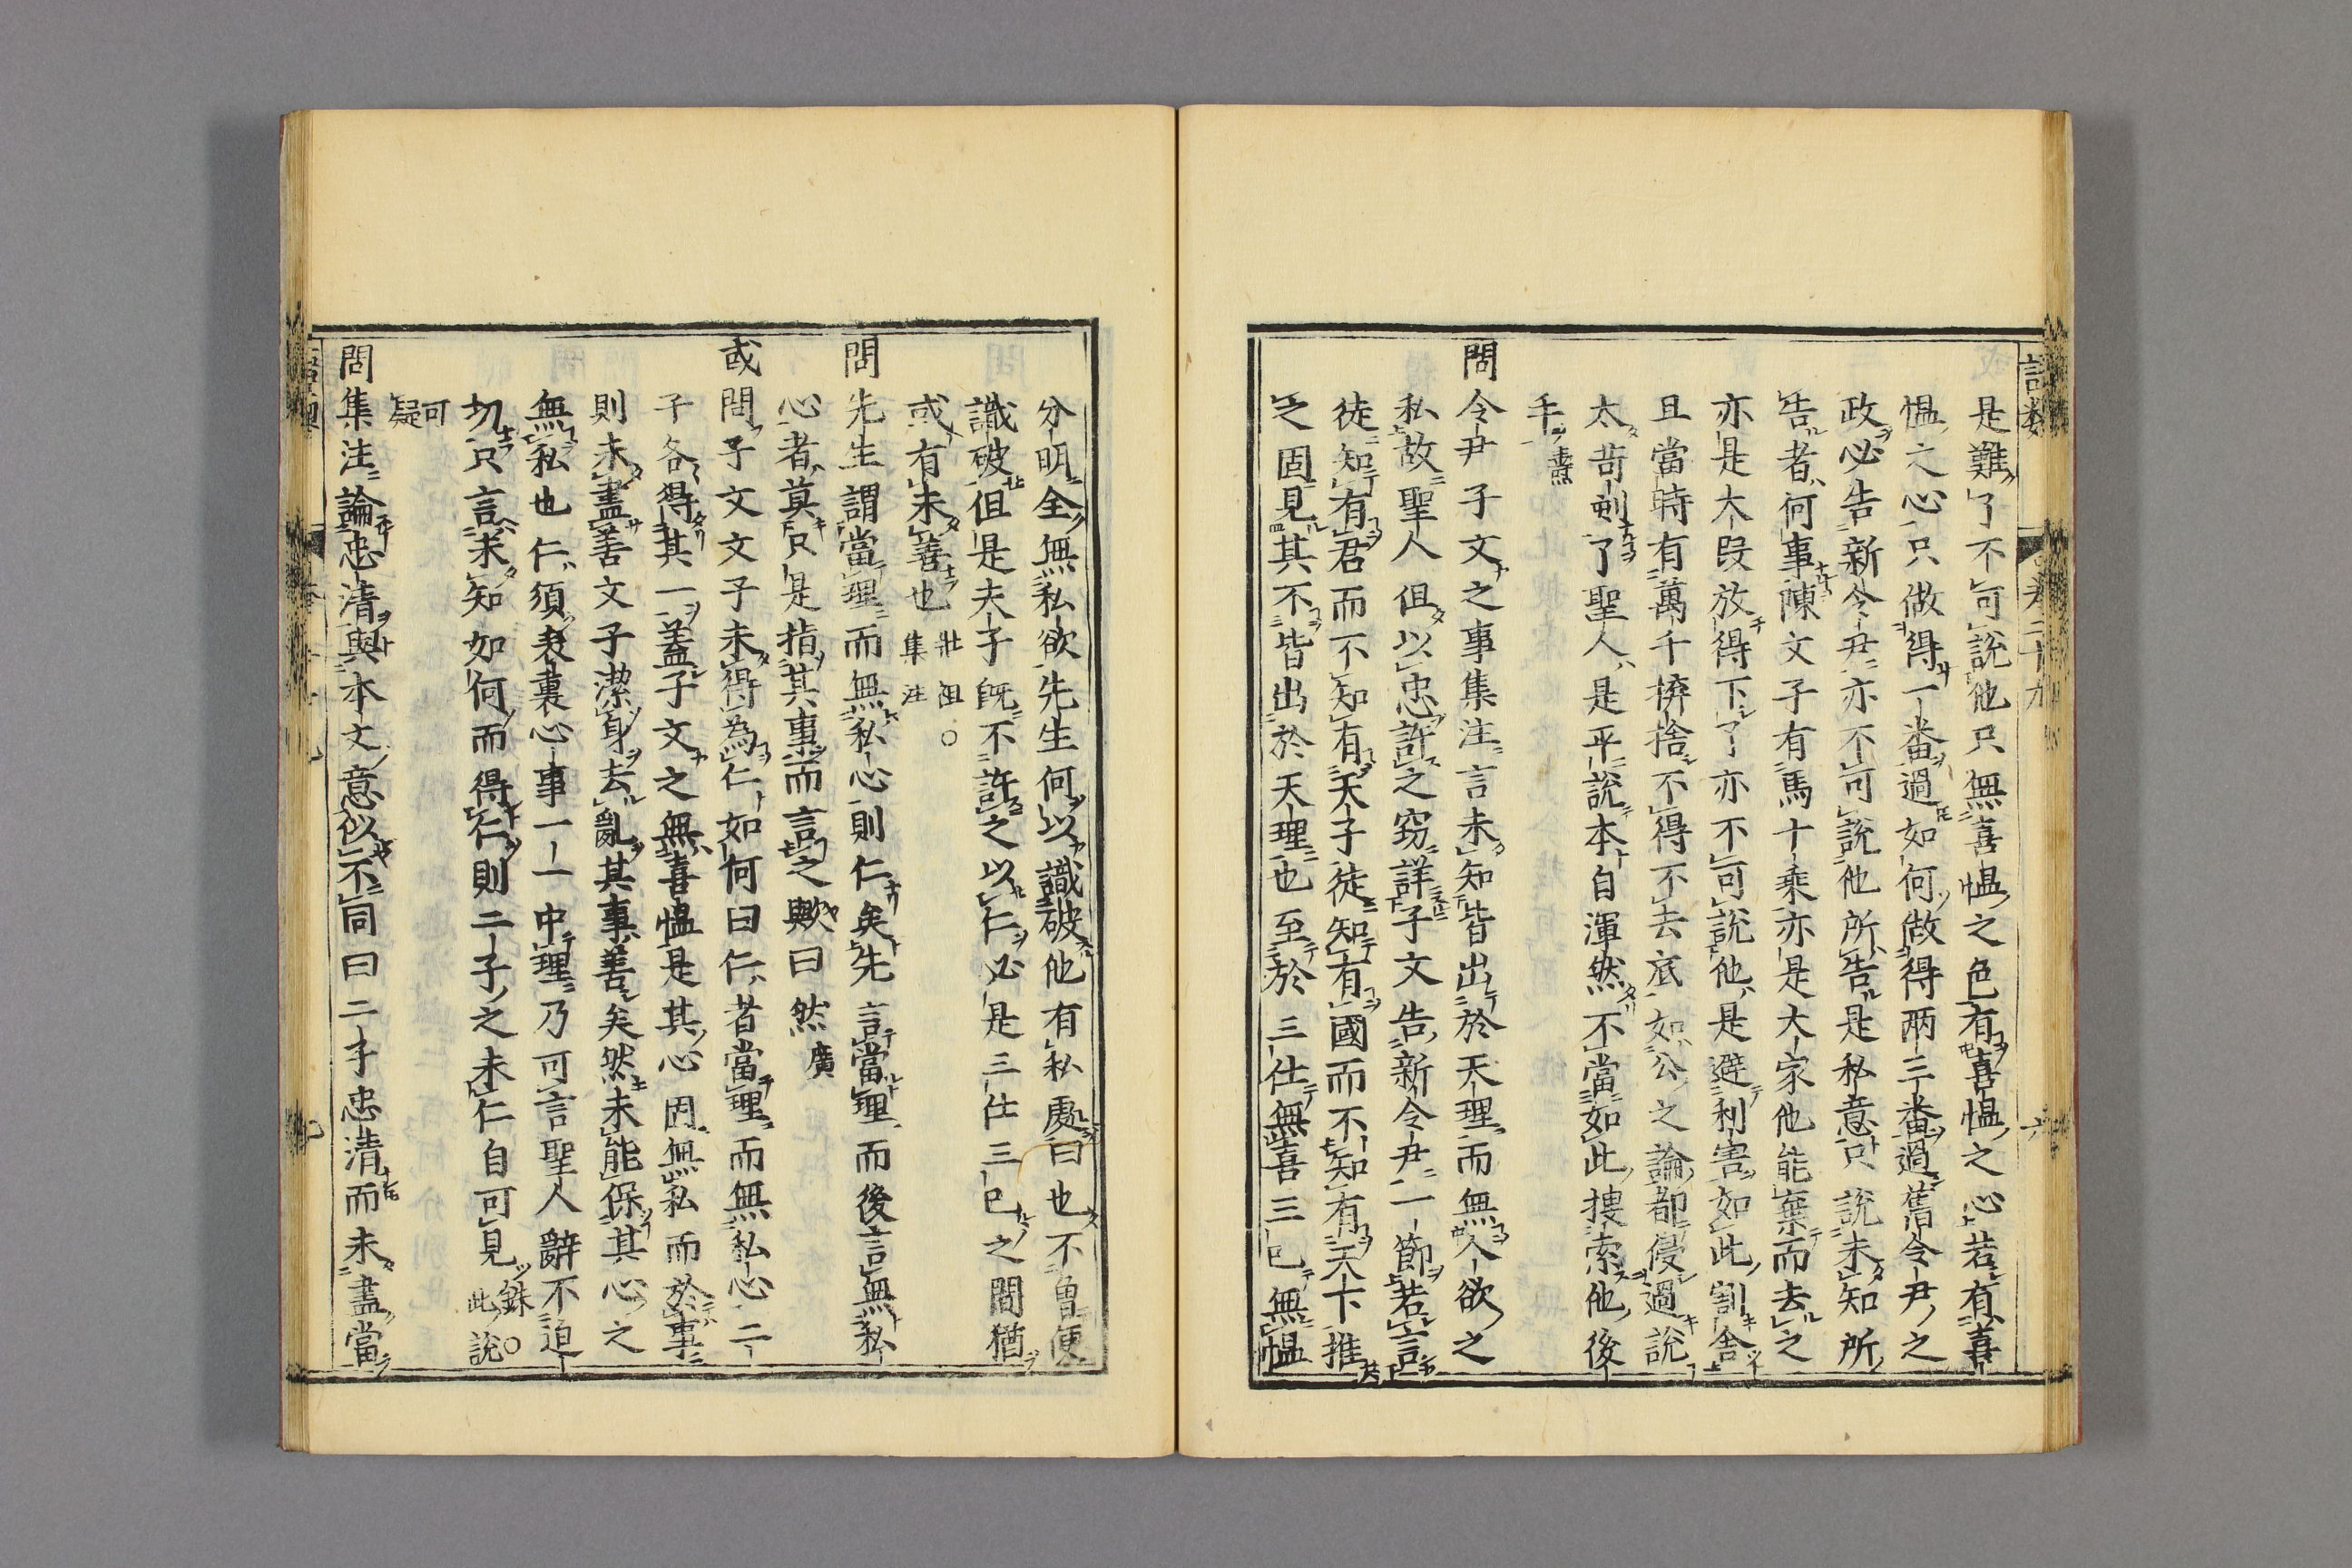 是難了不可說他只無喜慍之色有喜慍之心若有喜
慍之心只做得一番過如何做得兩三番過舊令尹之
政必告新令尹亦不可說他所告是私意只說未知所
告者何事陳文子有馬十乘亦是大家他能棄而去之
亦是大段放得下了亦不可說他是避利害如此割舍
且當時有萬千擠捨不得不去底如公之論都侵過說
太苛刻了聖人是平說本自渾然不當如此搜索他後
手 燾
問令尹子文之事集注言未知皆出於天理而無人欲之
私故聖人但以忠許之竊詳子文告新令尹一節若言
徒知有君而不知有天子徒知有國而不知有天下推
之固見其不皆出於天理也至於三仕無喜三已無慍
分明全無私欲先生何以識破他有私處曰也不曾便
識破但是夫子既不許之以仁必是三仕三已之間猶
或有未善也 壯祖○集注
問先生謂當理而無私心則仁矣先言當理而後言無私
心者莫只是指其事而言之歟曰然 廣
或問子文文子未得為仁如何曰仁者當理而無私心二
子各得其一蓋子文之無喜慍是其心固無私而於事
則未盡善文子潔身去亂其事善矣然未能保其心之
無私也仁須表裏心事一一中理乃可言聖人辭不迫
切只言未知如何而得仁則二子之未仁自可見 銖○此說
可疑
問集注論忠清與本文意似不同曰二子忠清而未盡當